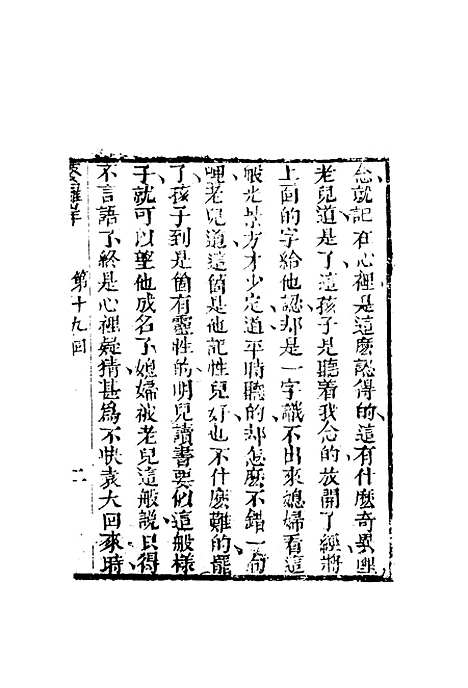 念就記在心裡是這麽認得的這有什麽奇異哩
老兒道是了這孩子是聽着我念的放開了經將
上面的字給他認却是一字識不出來媳婦看這
般光景方才少定道平時聽的却怎麽不錯一句
哩老兒道這箇是他記性兒好也不什麽難的罷
了孩子到是箇有靈性的明兒讀書要似這般樣
子就可以望他成名了媳婦被老兒這般說只得
不言語了終是心裡疑猜甚爲不快袁大回來時
第十九回
二